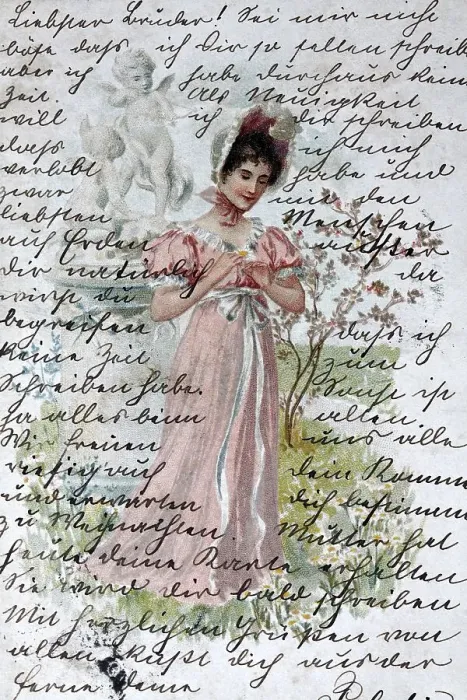 Liebster Bruder! Sei mir nicht
böse dass ich Dir so selten schreib
aber ich habe durchaus kein
Zeit. Als Neuigkeit
will ich dir schreiben
dass ich mich
verlobt habe und
zwar mit den
liebsten Menschen
auf Erden ausser
dir natürlich da
wirst du
begreifen dass ich
keine Zeit zum
Schreiben habe. Sonst ist
ja alles beim alten.
Wir freuen uns alle
riesig auf dein Komme
und erwarten dich bestimm
zu Weihnachten. Mutter hat
heute deine Karte erhalten
Sie wird dir bald schreiben
Mit herzlichen Grüßen von
allen küßt dich aus der
ferne deine